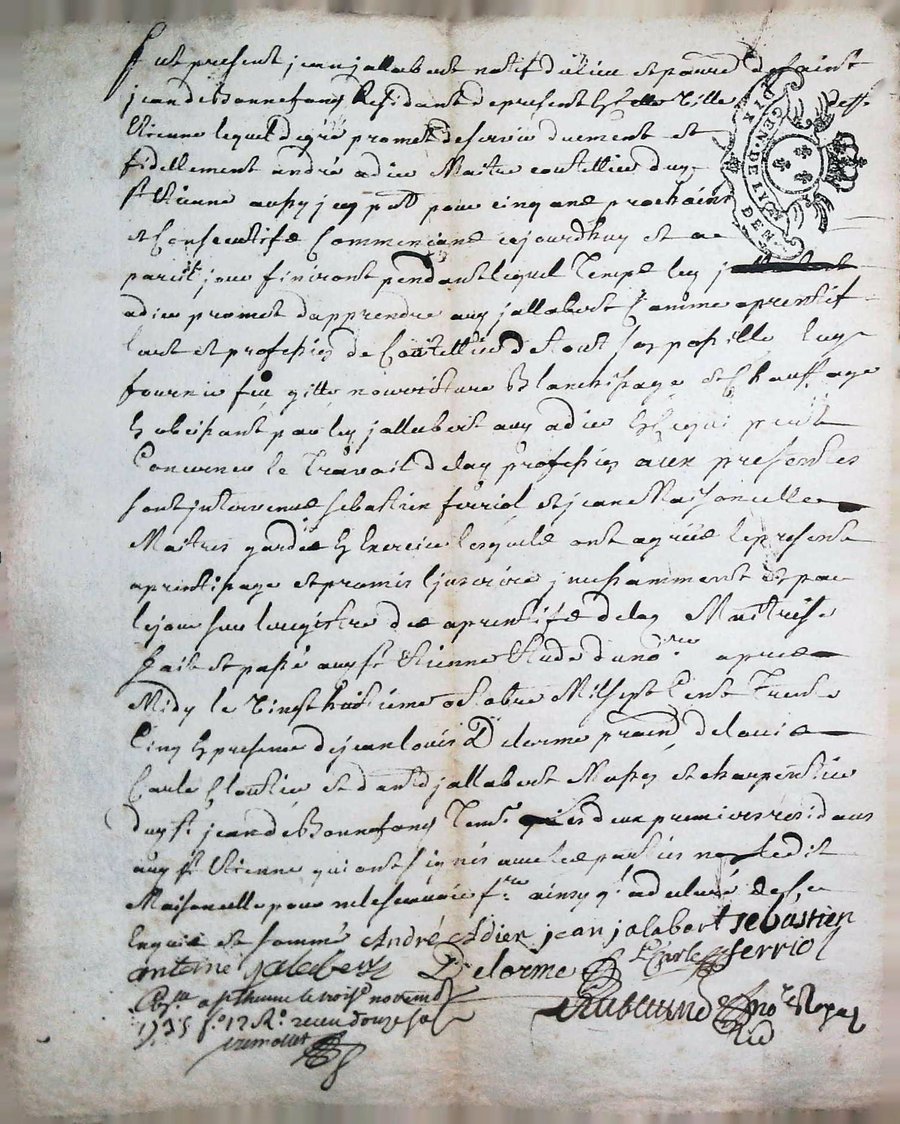 fut present jean jallabert natif du lieu et parre de saint
jean de Bonnefong Residant de present en cette Ville de st
Etienne lequel de gré promet de servir duement et
fidellement andré adier Maitre coutellier dud
st Etienne aussy icy pnt pour cinq ans prochains
et Consecutifs Commencians cejourdhuy et a
pareil jour finiront pendant lequel Temps led
adier promet d'apprendre aud jallabert Comme aprentif
lart et profession de Coutellier de tout son possible luy
fournir feu gitte nourriture Blanchissage et Chauffage
En obeissant par led jallabert aud adier En ce qui peut
Concerner le Travail de lad profession aux presentes
sont intervenus sebastien ferriol et jean Maisonnelle
Maitres gardes En Exercice lesquels ont agréé le present
aprentissage et promis linscrire jncessamment et par
le jour sur le registre des aprentifs de lad Maitrise
fait et passé aud st Etienne Etude du nore apres
Midy le Vingt huitieme octobre Mil sept Cent Trente
Cinq En presence de jean louis Delorme pratn de louis
Carle Cloutier et dant jallabert Masson et charpentier
dud st jean de Bonnefong Tem. les deux premiers residans
aud st Etienne qui ont signés avec les parties non ledit
Maisonnelle pour ne le scavoir fre ainsy ql a declaré de ce
Enquis et sommé André Adier jean jalabert sebastien
antoine jalabert Delorme Carle ferriol
Coll. a st Etienne le trois novemb
1735 fo 12 Ro receu douze sols
no.re Royal